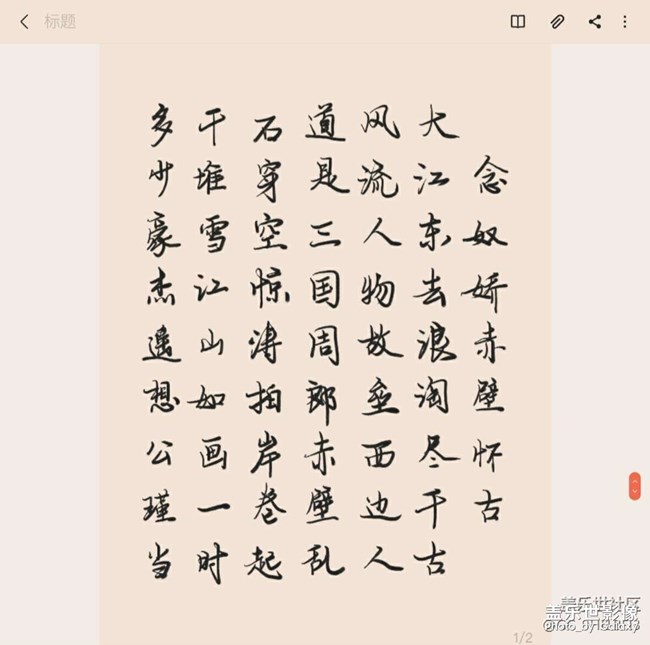 标题
念奴娇赤壁怀古
大江东去浪淘尽千古
风流人物故垒西边人
道是三国周郎赤壁乱
石穿空惊涛拍岸卷起
千堆雪江山如画一时
多少豪杰遥想公瑾当
盖乐世社区
盖乐世影像
1/2